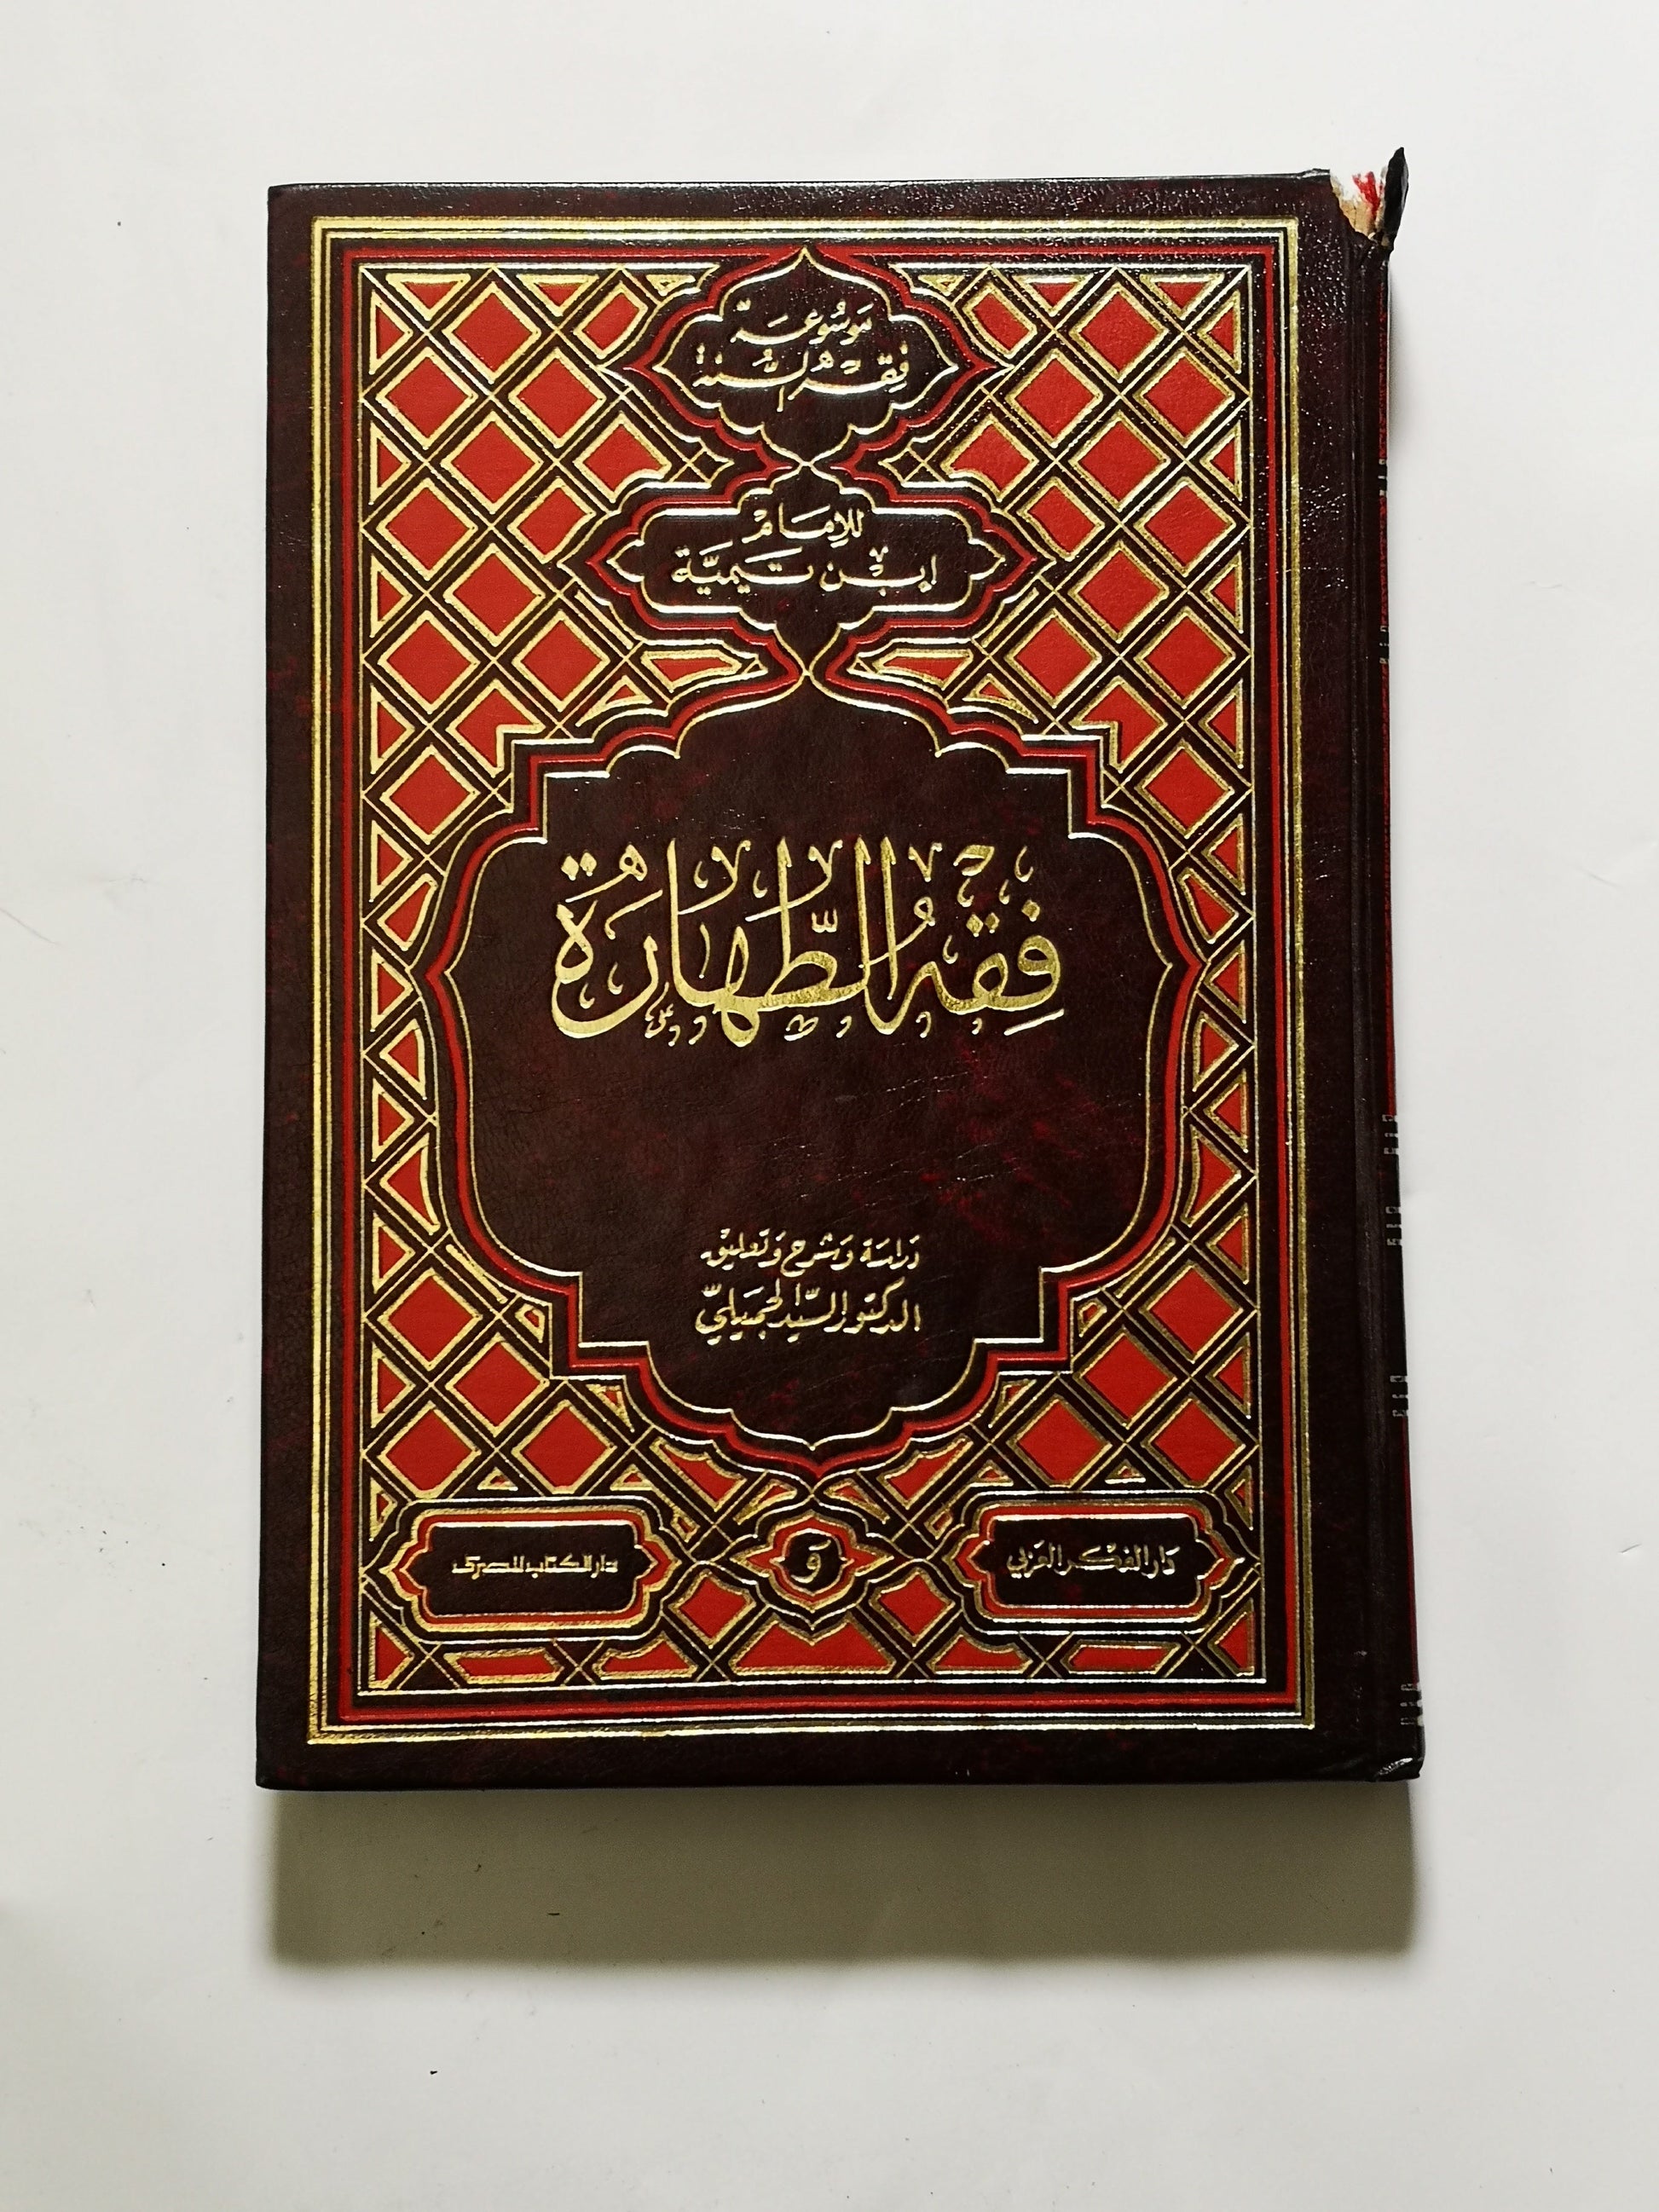 مَوسُوعَة
فِقْهِ السُّنَّة
للإِمَام
ابْن تَيميَّة
فِقْهُ الطَّهَارَة
دَرَاسَة وَشَرح وَتَعليق
الدكتور السَّيِّد الجُمَيلِيّ
دَار الفِكر العَرَبي
و
دار الكتاب المصرى